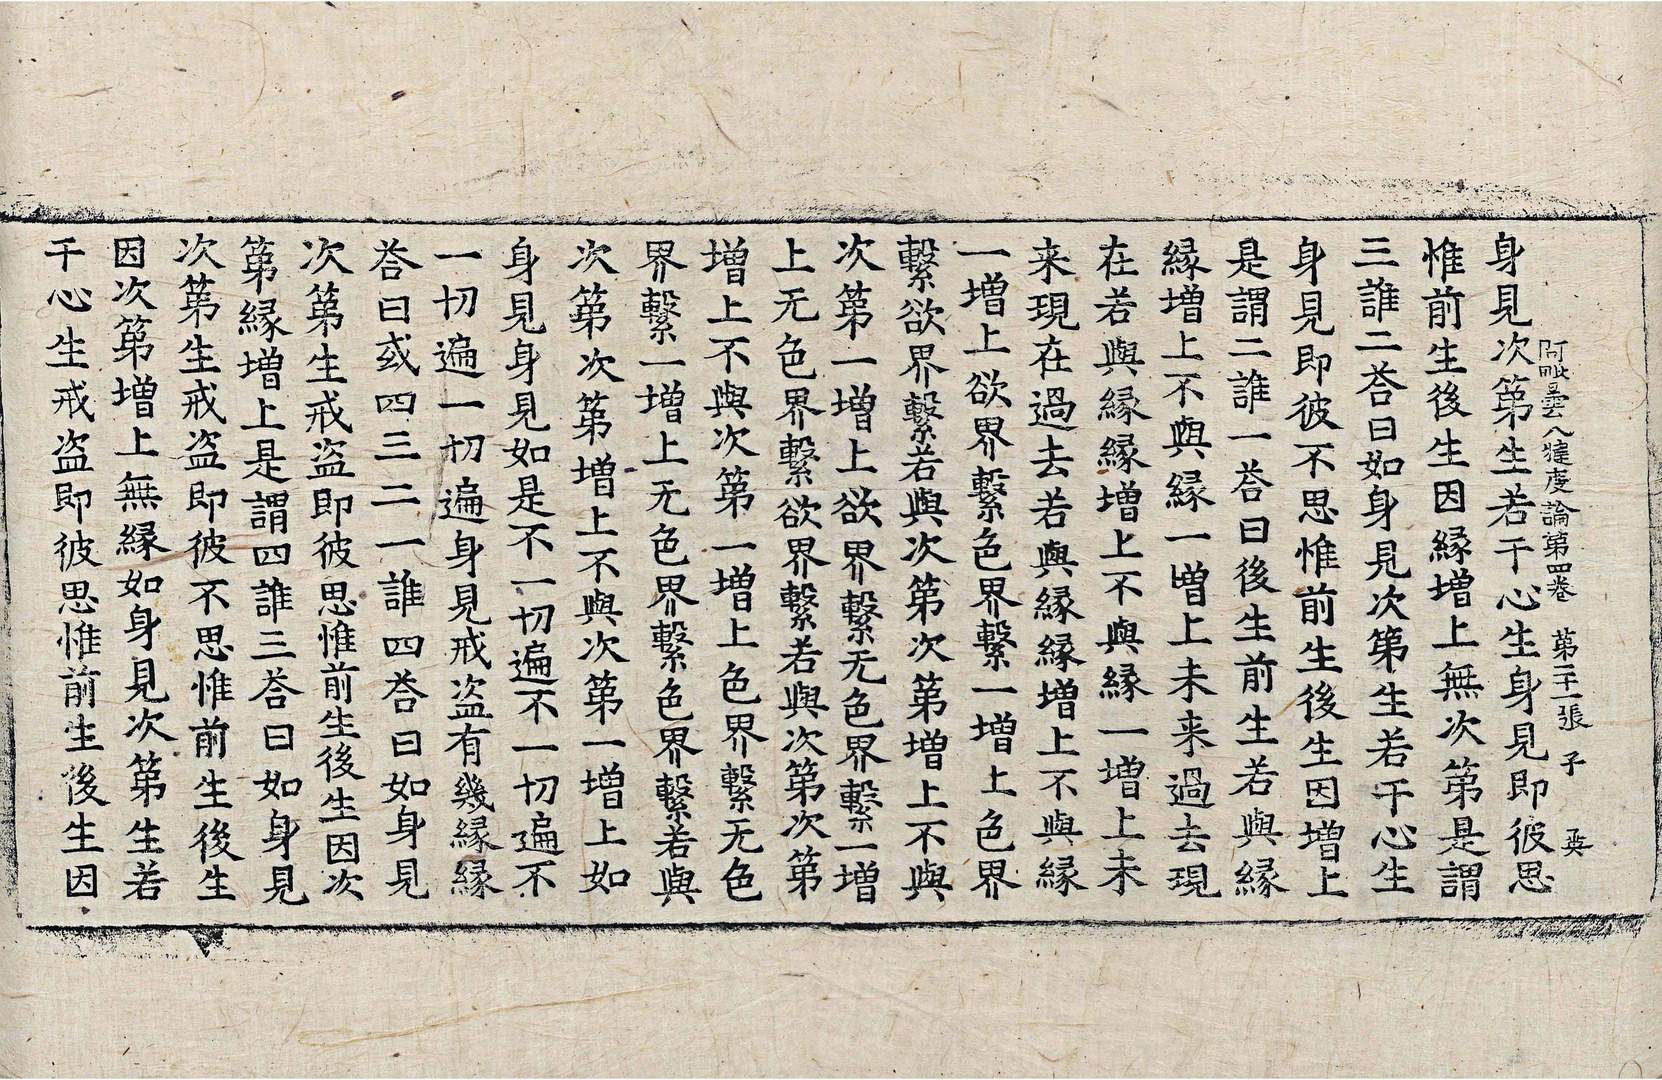 阿毗曇八犍度論第四卷　第二十一張　子　英
身見次第生若干心生身見即彼思
惟前生後生因緣增上無次第是謂
三誰二荅曰如身見次第生若干心生
身見即彼不思惟前生後生因增上
是謂二誰一荅曰後生前生若與緣
緣增上不與緣一增上未来過去現
在若與緣緣增上不與緣一增上未
来現在過去若與緣緣增上不與緣
一增上欲界繫色界繫一增上色界
繫欲界繫若與次第次第增上不與
次第一增上欲界繫无色界繫一增
上无色界繫欲界繫若與次第次第
增上不與次第一增上色界繫无色
界繫一增上无色界繫色界繫若與
次第次第增上不與次第一增上如
身見身見如是不一切遍不一切遍不
一切遍一切遍身見戒盗有幾緣緣
荅曰或四三二一誰四荅曰如身見
次第生戒盗即彼思惟前生後生因次
第緣增上是謂四誰三荅曰如身見
次第生戒盗即彼不思惟前生後生
因次第增上無緣如身見次第生若
干心生戒盗即彼思惟前生後生因